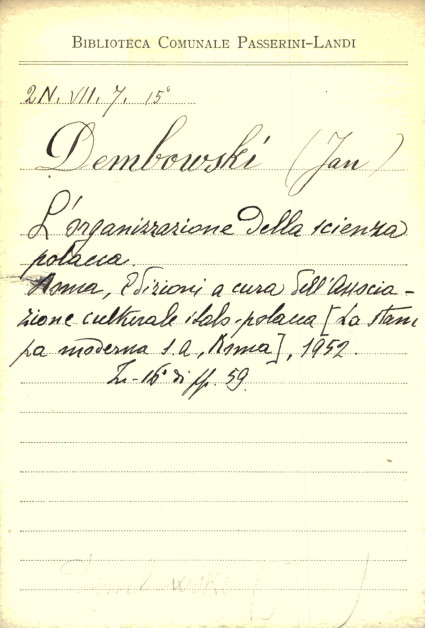 BIBLIOTECA COMUNALE PASSERINI-LANDI
2N. VII. 7. 15°
Dembowski (Jan)
L'organizzazione della scienza
polacca.
Roma, Edizioni a cura dell'Associa-
zione culturale italo-polacca [La stam
pa moderna s.a., Roma], 1952.
In-16° di pp. 59.